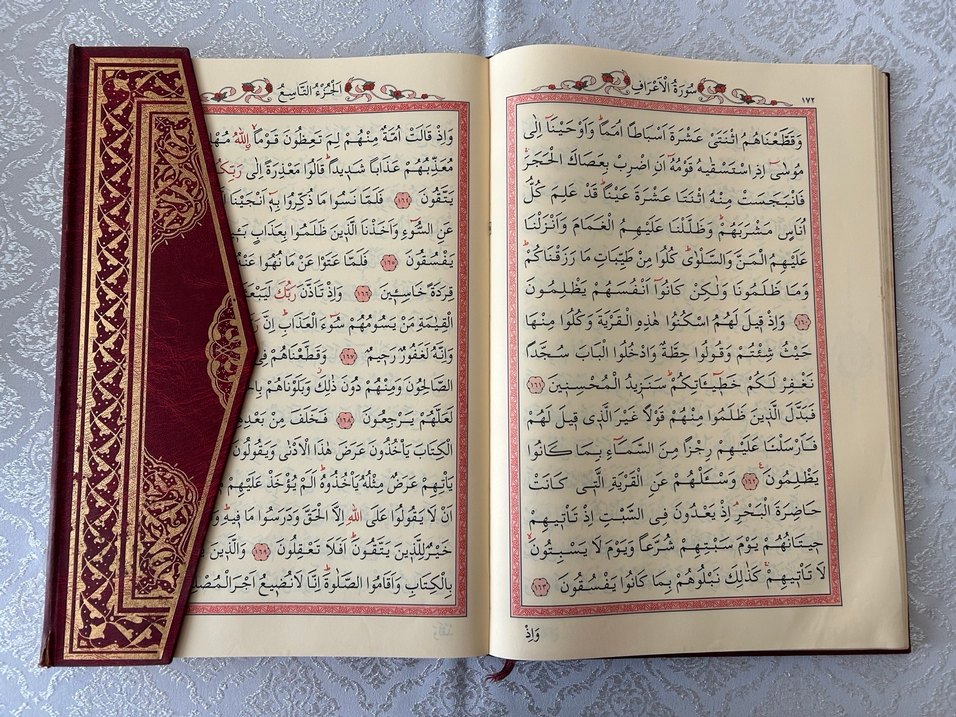 سُورَةُ الْاَعْرَافِ
١٧٢
وَقَطَّعْنَاهُمُ اثْنَتَىْ عَشْرَةَ اَسْبَاطًا اُمَمًاۜ وَاَوْحَيْنَٓا اِلٰى
مُوسٰٓى اِذِ اسْتَسْقٰيهُ قَوْمُهُٓ اَنِ اضْرِبْ بِعَصَاكَ الْحَجَرَۚ
فَانْبَجَسَتْ مِنْهُ اثْنَتَا عَشْرَةَ عَيْنًاۜ قَدْ عَلِمَ كُلُّ
اُنَاسٍ مَشْرَبَهُمْۜ وَظَلَّلْنَا عَلَيْهِمُ الْغَمَامَ وَاَنْزَلْنَا
عَلَيْهِمُ الْمَنَّ وَالسَّلْوٰىۜ كُلُوا مِنْ طَيِّبَاتِ مَا رَزَقْنَاكُمْۜ
وَمَا ظَلَمُونَا وَلٰكِنْ كَانُٓوا اَنْفُسَهُمْ يَظْلِمُونَ
﴿١٦٠﴾ وَاِذْ قِيلَ لَهُمُ اسْكُنُوا هٰذِهِ الْقَرْيَةَ وَكُلُوا مِنْهَا
حَيْثُ شِئْتُمْ وَقُولُوا حِطَّةٌ وَادْخُلُوا الْبَابَ سُجَّدًا
نَغْفِرْ لَكُمْ خَطِٓيـَٔاتِكُمْۜ سَنَزِيدُ الْمُحْسِنِينَ ﴿١٦١﴾
فَبَدَّلَ الَّذِينَ ظَلَمُوا مِنْهُمْ قَوْلًا غَيْرَ الَّذِى قِيلَ لَهُمْ
فَاَرْسَلْنَا عَلَيْهِمْ رِجْزًا مِنَ السَّمَٓاءِ بِمَا كَانُوا
يَظْلِمُونَ۟ ﴿١٦٢﴾ وَسْـَٔلْهُمْ عَنِ الْقَرْيَةِ الَّتِى كَانَتْ
حَاضِرَةَ الْبَحْرِۢ اِذْ يَعْدُونَ فِى السَّبْتِ اِذْ تَأْتِيهِمْ
حِيتَانُهُمْ يَوْمَ سَبْتِهِمْ شُرَّعًا وَيَوْمَ لَا يَسْبِتُونَۙ
لَا تَأْتِيهِمْۚ كَذٰلِكَ نَبْلُوهُمْ بِمَا كَانُوا يَفْسُقُونَ ﴿١٦٣﴾
وَاِذْ
اَلْجُزْءُ التَّاسِعُ
وَاِذْ قَالَتْ اُمَّةٌ مِنْهُمْ لِمَ تَعِظُونَ قَوْمًاۙ اللّٰهُ
مُعَذِّبُهُمْ عَذَابًا شَدِيدًاۜ قَالُوا مَعْذِرَةً اِلٰى
يَتَّقُونَ ﴿١٦٤﴾ فَلَمَّا نَسُوا مَا ذُكِّرُوا بِهِٓ اَنْجَيْنَا
عَنِ السُّٓوءِ وَاَخَذْنَا الَّذِينَ ظَلَمُوا بِعَذَابٍ
يَفْسُقُونَ ﴿١٦٥﴾ فَلَمَّا عَتَوْا عَنْ مَا نُهُوا عَنْهُ
قِرَدَةً خَاسِـِٔينَ ﴿١٦٦﴾ وَاِذْ تَاَذَّنَ رَبُّكَ
الْقِيٰمَةِ مَنْ يَسُومُهُمْ سُٓوءَ الْعَذَابِۜ اِنَّ
وَاِنَّهُ لَغَفُورٌ رَحِيمٌ ﴿١٦٧﴾ وَقَطَّعْنَاهُمْ فِى
الصَّالِحُونَ وَمِنْهُمْ دُونَ ذٰلِكَۘ وَبَلَوْنَاهُمْ
لَعَلَّهُمْ يَرْجِعُونَ ﴿١٦٨﴾ فَخَلَفَ مِنْ
الْكِتَابَ يَأْخُذُونَ عَرَضَ هٰذَا الْاَدْنٰى وَيَقُولُونَ
يَأْتِهِمْ عَرَضٌ مِثْلُهُ يَأْخُذُوهُۜ اَلَمْ يُؤْخَذْ عَلَيْهِمْ
اَنْ لَا يَقُولُوا عَلَى اللّٰهِ اِلَّا الْحَقَّ وَدَرَسُوا مَا فِيهِۜ
خَيْرٌ لِلَّذِينَ يَتَّقُونَۜ اَفَلَا تَعْقِلُونَ ﴿١٦٩﴾ وَالَّذِينَ
بِالْكِتَابِ وَاَقَامُوا الصَّلٰوةَۜ اِنَّا لَا نُضِيعُ اَجْرَ